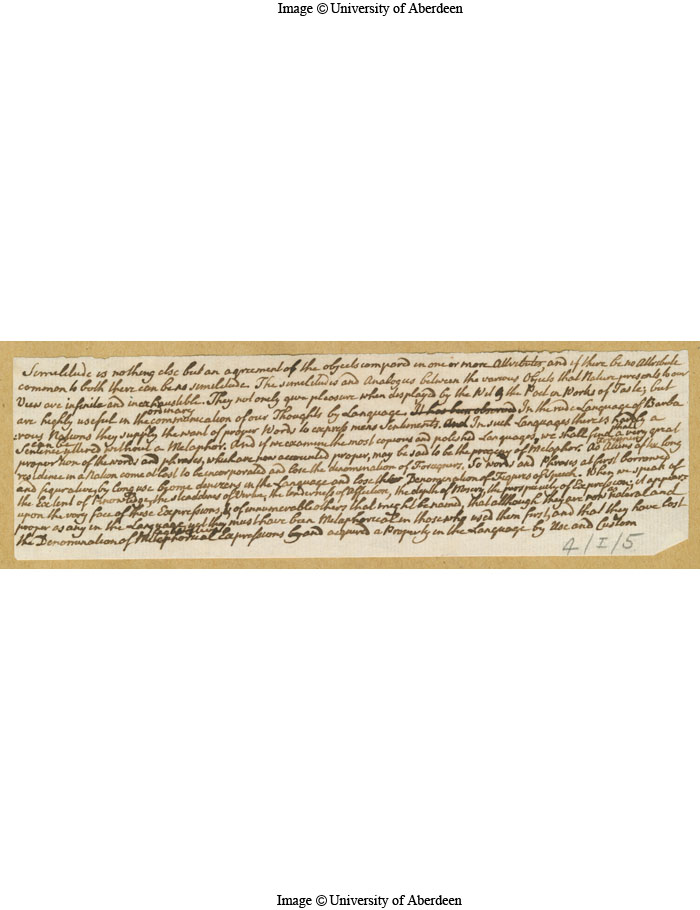 Image © University of Aberdeen
Similitude is nothing else but an agreement of the objects compard in one or more Attributes and if there be no Attribute
common to both there can be no similitude. The similitudes and Analogies between the various Objects that Nature presents to our
View are infinite and inexhaustible. They not only give pleasure when displayed by the Wit of the Poet in Works of Taste; but
are highly useful in the ordinary communication of our Thoughts by Language. It has been observed In the rude Languages of Barba
rous Nations they supply the want of proper Words to express mens Sentiments, And In such Languages there is hardly a
Sentence uttered without a Metaphor. And if we examine the most copious and polished Languages, we shall find a very great
proportion of the words and phrases, which are now accounted proper, may be said to be the progeny of Metaphor. As Aliens after long
residence in a Nation come at last to be incorporated and lose the denomination of Foreigners, So words and Phrases at first borrowed
and figurative by long use become denizens in the Language and lose the Denomination of Figures of Speech. When we speak of
the Extent of Knowledge, the steadiness of Virtue, the tenderness of Affection, the perspicuity of Expression; it appears
upon the very face of these Expressions, & of innumerable others that might be named, that although they are now natural and
proper as any in the Language yet they must have been Metaphorical in those who used them first; and that they have lost
the Denomination of Metaphorical Expressions by and acquired a Property in the Language by Use and Custom
4/I/5
Image © University of Aberdeen